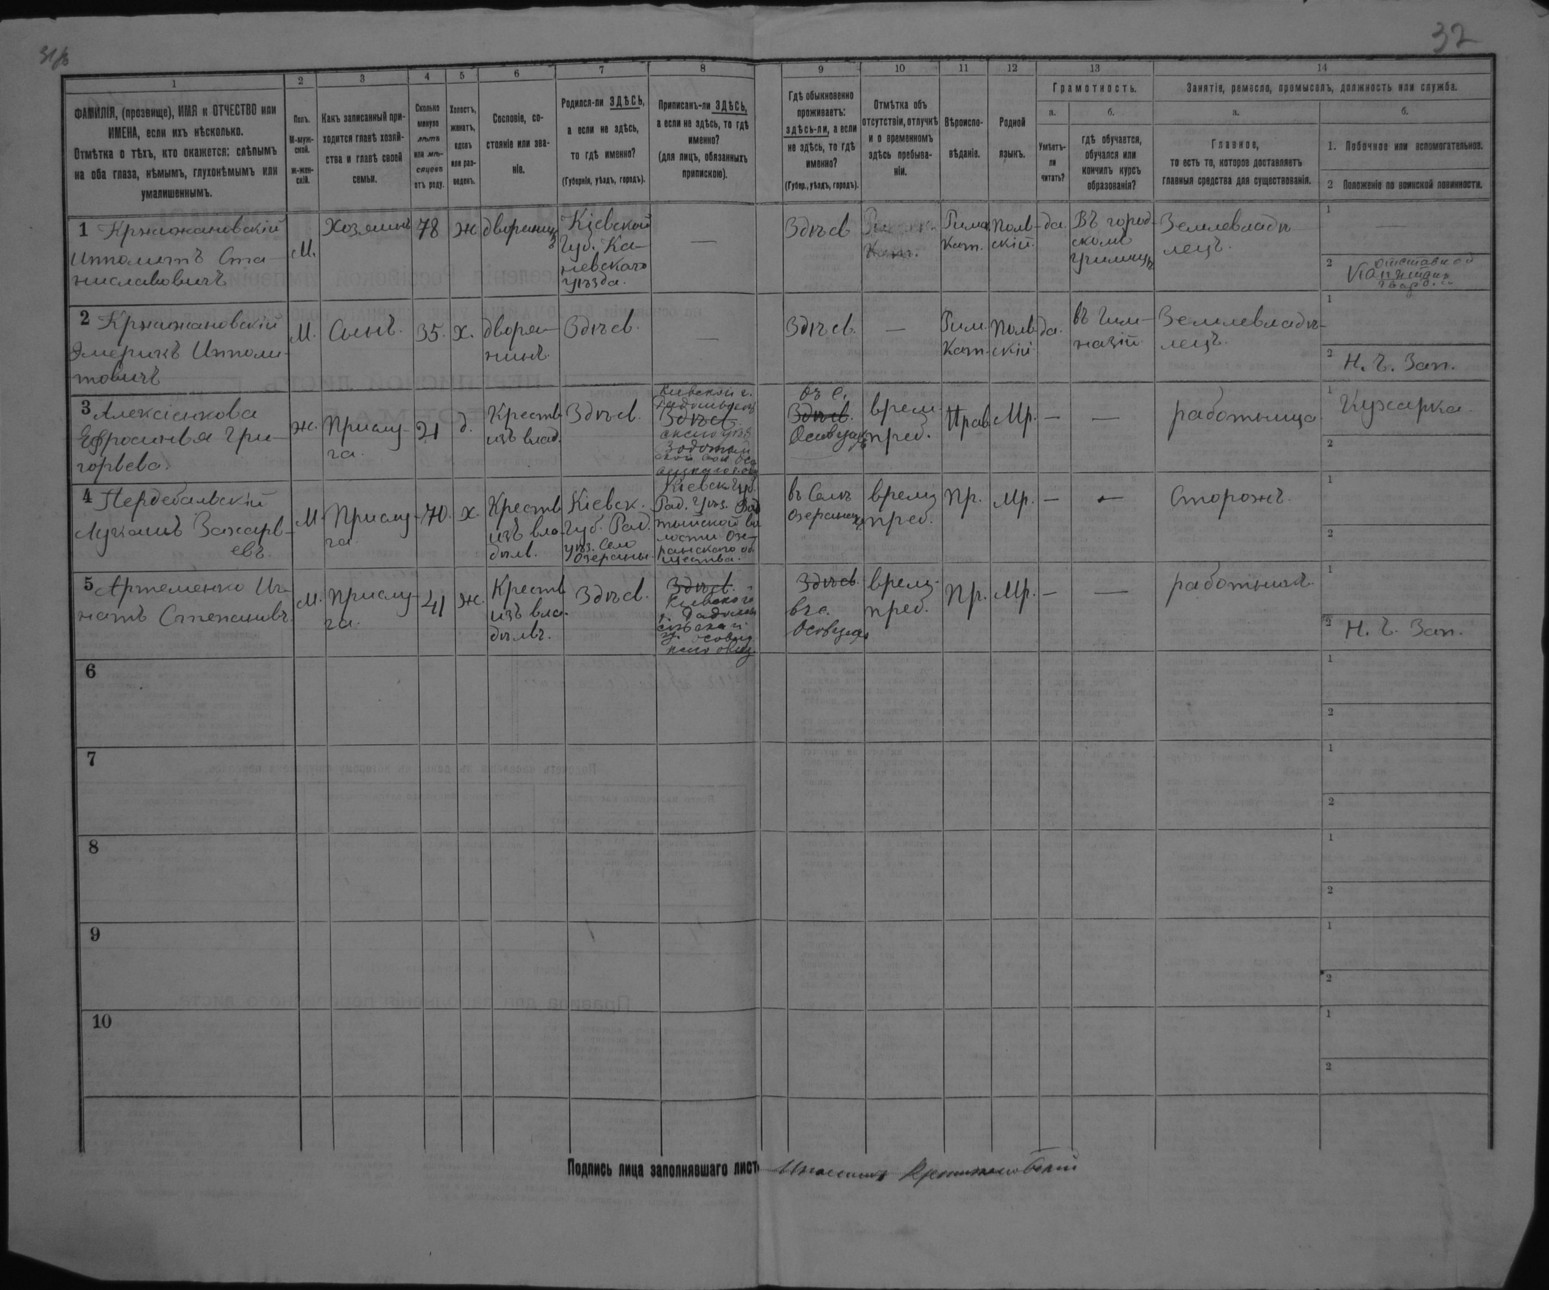 32
1 2 3 4 5 6 7 8 9 10 11 12 13 14
ФАМИЛІЯ, (прозвище), ИМЯ и ОТЧЕСТВО или
ИМЕНА, если ихъ нѣсколько.
Отмѣтка о тѣхъ, кто окажется: слѣпымъ
на оба глаза, нѣмымъ, глухонѣмымъ или
умалишеннымъ.
Полъ.
М-муж-
ской.
ж-жен-
скій.
Какъ записанный при-
ходится главѣ хозяй-
ства и главѣ своей
семьи.
Сколько
минуло
лѣтъ
или мѣ-
сяцевъ
отъ роду.
Холостъ,
женатъ,
вдовъ
или раз-
веденъ.
Сословіе, со-
стояніе или зва-
ніе.
Родился-ли ЗДѢСЬ,
а если не здѣсь,
то гдѣ именно?
(Губернія, уѣздъ, городъ).
Приписанъ-ли ЗДѢСЬ,
а если не здѣсь, то гдѣ
именно?
(для лицъ, обязанныхъ
припискою).
Гдѣ обыкновенно
проживаетъ:
здѣсь-ли, а если
не здѣсь, то гдѣ
именно?
(Губер., уѣздъ, городъ).
Отмѣтка объ
отсутствіи, отлучкѣ
и о временномъ
здѣсь пребыва-
ніи.
Вѣроиспо-
вѣданіе.
Родной
языкъ.
Грамотность.
а.
Умѣетъ-
ли
читать?
б.
гдѣ обучается,
обучался или
кончилъ курсъ
образованія?
Занятія, ремесло, промыселъ, должность или служба.
а.
Главное,
то есть то, которое доставляетъ
главныя средства для существованія.
б.
1. Побочное или вспомогательное.
2 Положеніе по воинской повинности.
1 Кржижановскій
Ипполитъ Ста-
ниславовичъ
М.
Хозяинъ
78
ж
дворянинъ
Кіевской
Губ. Ка-
невскаго
уѣзда.
—
Здѣсь
Римск
Кат.
Поль
скій
да
Въ город
скомъ
училищѣ
Землевладѣ
лецъ.
1 —
2 отставной
2 Кржижановскій
Эмерикъ Иппли-
товичъ
М.
Сынъ.
35.
х.
дворя-
нинъ
Здѣсь
—
Здѣсь
—
Рим.
Кат.
Поль
скій
да.
въ гим-
назіи
Землевладѣ-
лецъ.
1
2 Н. Ч. Зап.
3 Алексіенкова
Ефросинья Гри-
горьева
ж.
Прислу
га.
21
д.
Крестъ
изъ влад.
Здѣсь
Кіевской г.
Здѣсь
въ с.
Здѣсь
врем
преб.
Прав
Мр.
—
—
работница
1 Кухарка
2
4 Пердебальскій
Лукашъ Захарь-
евъ
М.
Прислу
га
70.
х.
Крестъ
изъ вла
дѣль.
Кіевск.
Губ. Рад.
уѣз. село
Озераны
Кіевск. губ.
Рад. Уѣз.
въ Селѣ
врем
преб.
Пр.
Мр.
—
—
Сторожъ
1
2
5 Артеменко Иг-
натъ Степановъ
М.
Прислу
га.
41
ж.
Крестъ
изъ вла-
дѣлъ.
Здѣсь.
Здѣсь.
Здѣсь
въ с.
врем.
преб.
Пр.
Мр.
—
—
работникъ
1
2 Н. Ч. Зап.
6
1
2
7
1
2
8
1
2
9
1
2
10
1
2
Подпись лица заполнявшаго листъ